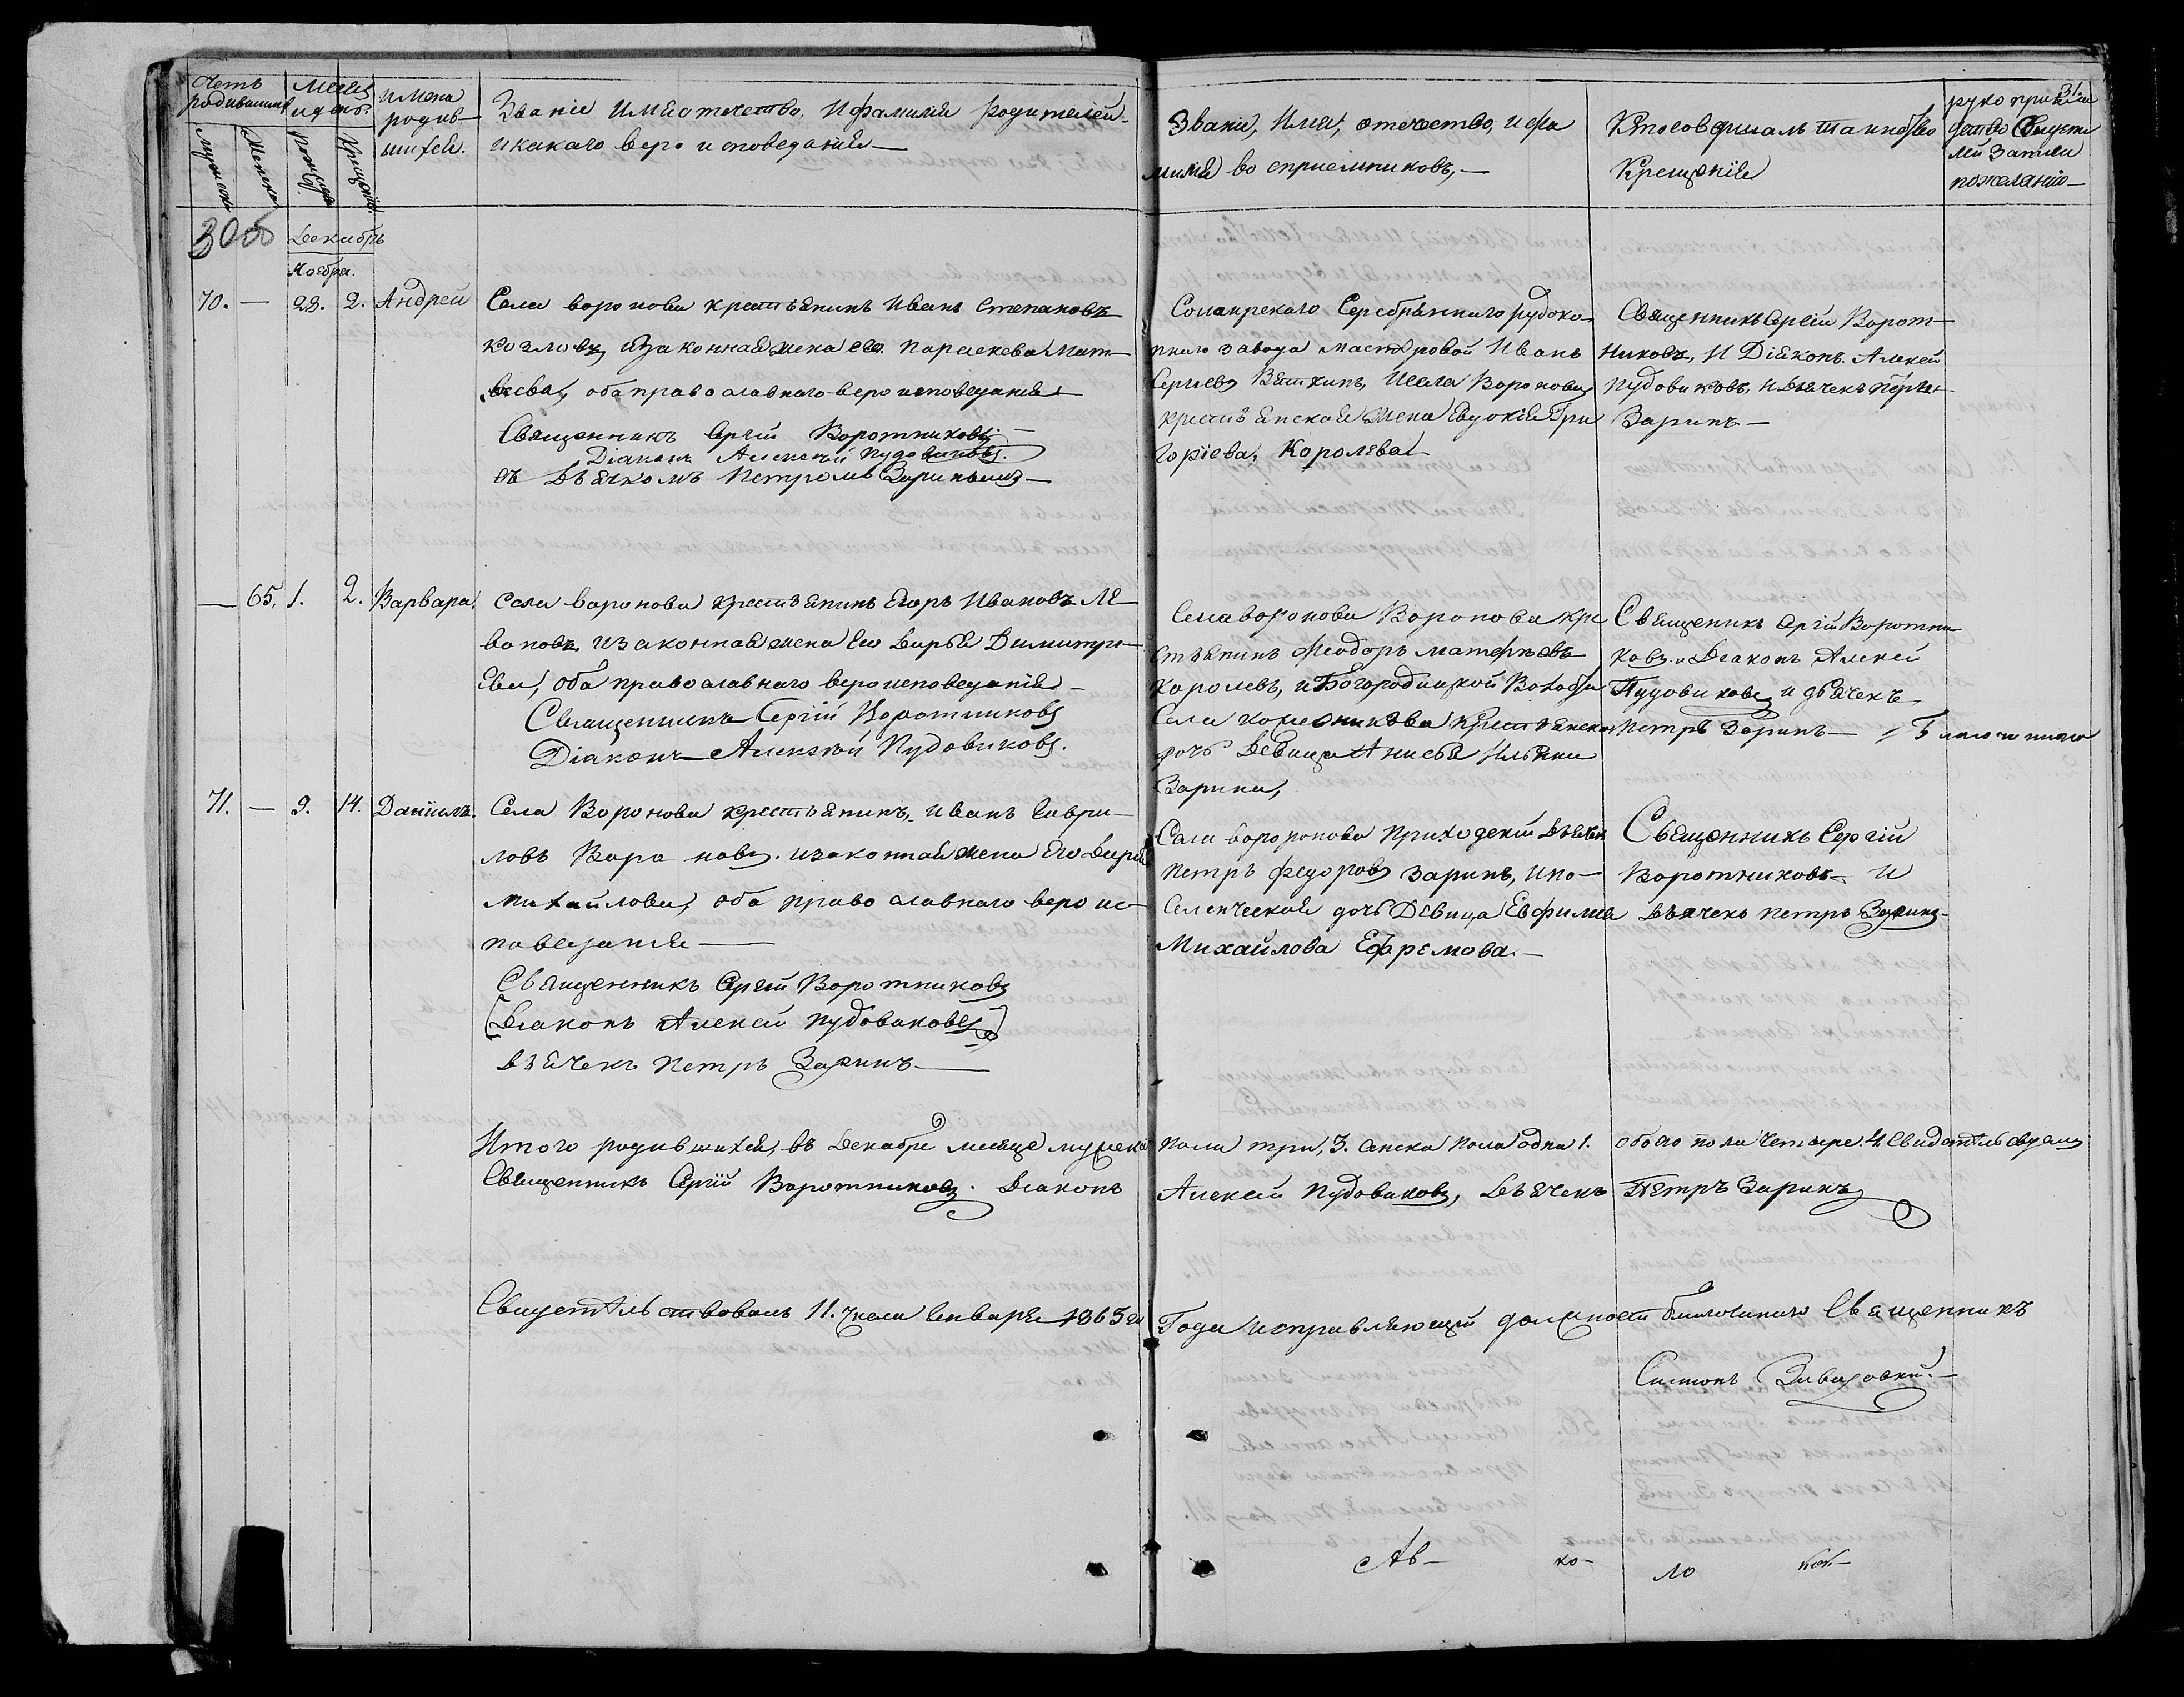 Счетъ родившихся
Месяцъ и день
имена родив-шихся.
Званіе Имя отечество, И фамилія родителей.
и какаго веро исповеданія—
Званіе, Имя, отечество, и фа
милія во сприемниковъ,—
Кто совершалъ таинство
Крещенія
руко прикла
детелей записи
пожеланію—
31.
Мужеска
Женска
Рожденія
Крещенія
Декабрь
Ноября.
70. — 28. 2. Андрей
Села воронова крестьянинъ Иванъ Степановъ
козловъ, и законная жена его Параскева Мат-
веева, оба православнаго веро исповеданія
Священникъ Сергій Воротниковъ
Діаконъ Алексѣй Пудовиковъ.
съ Дьячкомъ Петромъ Зоринымъ—
Серебряннаго рудоко-
пнаго завода мастеровой Иванъ
Сергіевъ Вяткинъ, Исела Воронова
крестьянская жена Евдокія Гри
горіева, Королева
Священникъ Сергій Ворот-
никовъ, И Діяконъ Алексей
пудовиковъ, и Дьячекъ Петръ
Заринъ—
— 65. 1. 2. Варвара.
Села воронова крестьянинъ Егоръ Ивановъ Ле-
вановъ, и законная жена Его Дарья Димитри-
Ева, оба православнаго вероисповеданія—
Священникъ Сергій Воротниковъ
Діаконъ Алексѣй Пудовиковъ.
Села воронова Воронова кре
стьянинъ Феодоръ матфеевъ
Королевъ, и Богородицкой Волости
Села крестьянская
дочь Девица Анисья Ильина
Зарина,
Священикъ Сергій Воротни
ковъ. и Діаконъ Алексей
Пудовиковъ и дьячекъ
Петръ Заринъ—
71. — 9. 14. Даніилъ.
Села Воронова крестьянинъ, иванъ Гаври-
ловъ Вара новъ. и законная жена Его Дарья
михайлова, оба право славнаго веро ис-
поведанія—
Священникъ Сергій Воротниковъ
Діаконъ Алексей пудовиковъ
дьячекъ Петръ Заринъ—
Села вороронова приходскій дьячек
петръ федоровъ заринъ, и по-
селенческая дочь Девица Евфимія
Михайлова Ефремова.—
Священникъ Сергій
Воротниковъ— и
дьячекъ петръ Заринъ—
Итого родившихся, въ декабре месяце мужска
пола три, 3. женска пола одна 1. обоего пола четыре. 4. Свидетельствуемъ
Священникъ Сергій Воротниковъ. Діаконъ
Алексей пудовиковъ, Дьячекъ Петръ Заринъ
Свидетельствовалъ 11. числа Генваря 1865 го
Года исправляющій должность благочиннаго Священникъ
Симонъ Завадовскій.—